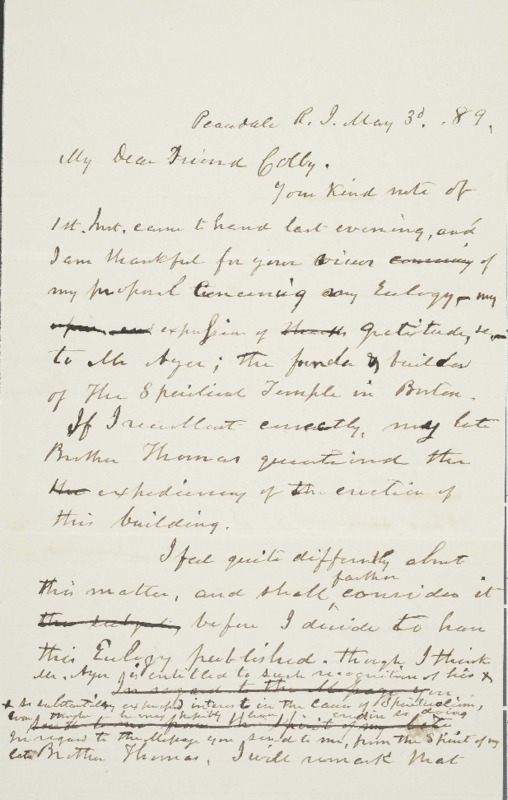 Peacedale R. I. May 3d. .89.
My Dear Friend Colby.
Your Kind note of
1st. Inst. came t hand last evening, and
I am thankful for your views of
my proposal Concerning any Eulogy, my
expression of gratitude, &c,
to Mr Ayer; the founder & builder
of The Spiritual Temple in Boston.
If I recollect correctly, my late
Brother Thomas questioned the
the expediency of the erection of
this building.
I feel quite differently about
this matter, and shall farther consider it
the subject, before I decide to have
this Eulogy published. though I think
Mr. Ayer is entitled to such recognition of his x
In regard to the Message you
x so substantially expressed interest in the cause of Spiritualism,
even though
In regard to the Message you send to me, from the Spirit of my
late Brother Thomas, I will remark that